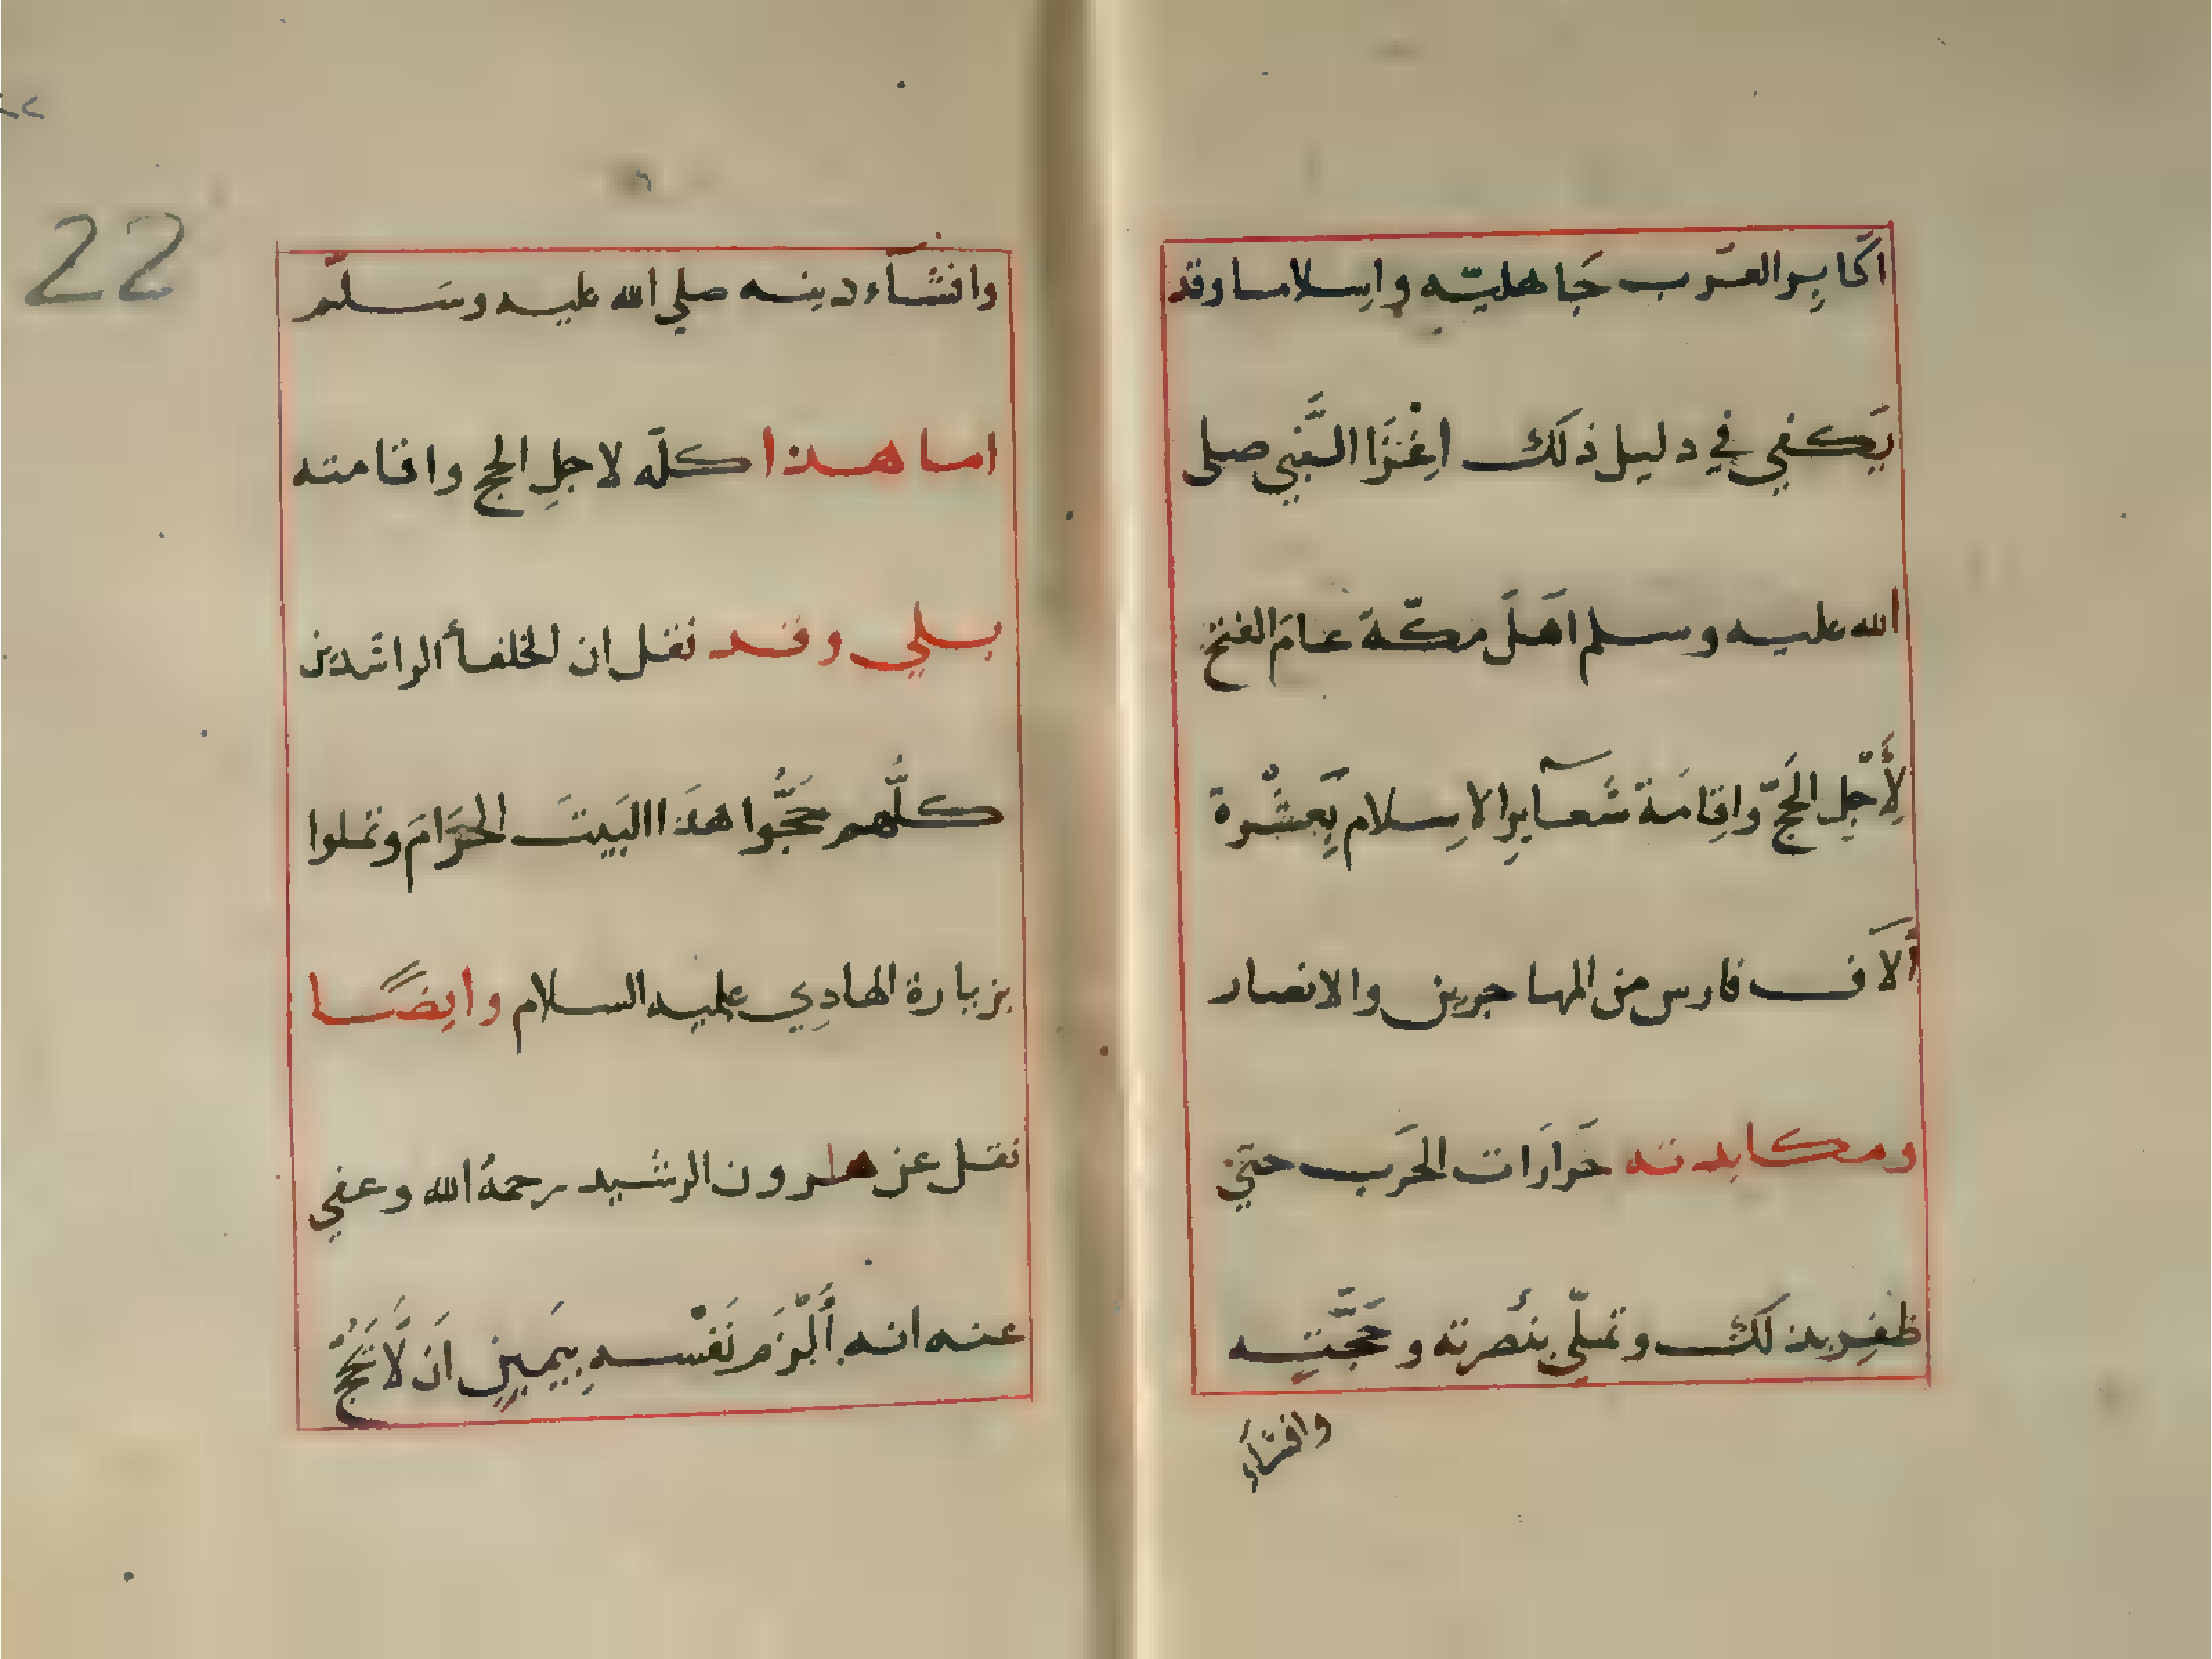 اكَابِر العَرب جَاهليّه واِسلاما وقد
يَكفي في دليل ذلَك اِغْزَا النَّبي صلى
الله عليه وسلم اَهلَ مكّة عَامَ الفتح
لِأَجْلِ الحَجّ واِقامَة شَعآيرِ الاِسلام بِعَشْرة
ألآف فارس من المهاجرين والانصار
ومكابدته حَرارَات الحَرب حتي
ظفِر بذلَك وتملّي بنُصرته وحَجَّتِه
وافشآء
وافشآء دينه صلي الله عليه وسَلّم
اما هذا كلّه لاجلِ الحج واقامته
بلي وقد نقل ان الخلفأ الراشدين
كلُّهم حَجُّوا هذَا البَيتَ الحَرَامَ وتملوا
بزيارة الهادِي عليه السلام وايضًا
نقل عن هارون الرشيد رحمهُ الله وعفي
عنه انه أَلْزَم نَفْسه بِيَمِينٍ اَن لَّا يَحُجَّ
22
٢٢